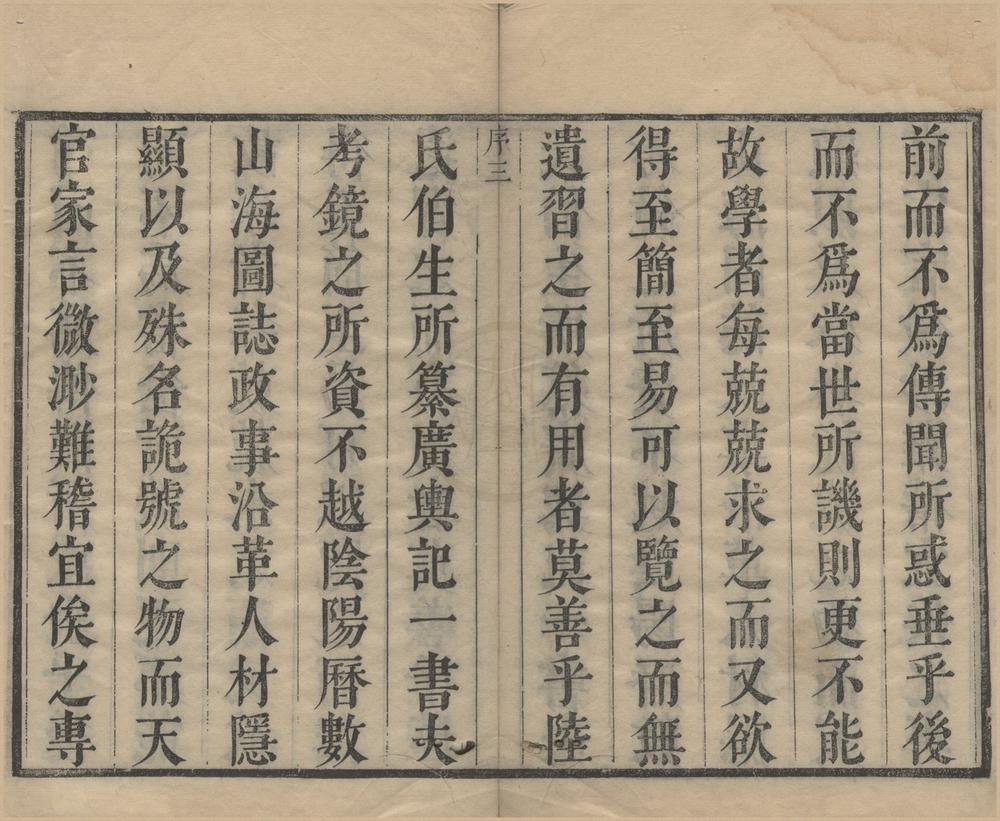 前而不爲傳聞所惑垂乎後
而不爲當世所譏則更不能
故學者每兢兢求之而又欲
得至簡至易可以覽之而無
遺習之而有用者莫善乎陸
序三
氏伯生所纂廣輿記一書夫
考鏡之所資不越陰陽曆數
山海圖誌政事沿革人材隱
顯以及殊名詭號之物而天
官家言微渺難稽宜俟之專